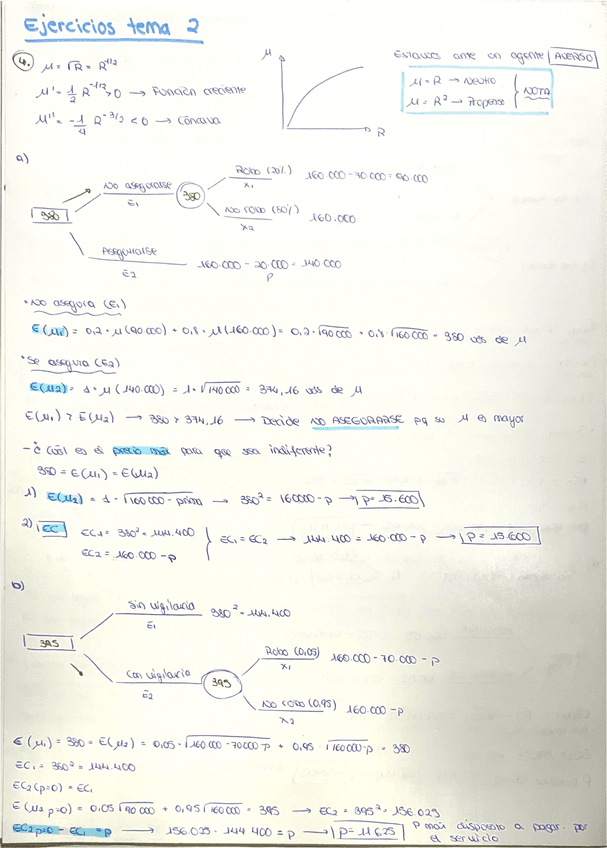 Ejercicios tema 2
4. μ = √R = R^1/2
μ' = 1/2 R^-1/2 > 0 → Función creciente
μ'' = -1/4 R^-3/2 < 0 → Cóncava
μ
R
Estamos ante un agente AVERSO
μ = R → Neutro
μ = R² → Propenso
NOTA
a)
380
No asegurarse
E1
380
Robo (20%)
x1
160.000 - 70.000 = 90.000
No robo (80%)
x2
160.000
Asegurarse
E2
160.000 - 20.000 = 140.000
P
· No asegura (E1)
E(μ1) = 0,2 · μ(90.000) + 0,8 · μ(160.000) = 0,2 · √90000 + 0,8 · √160000 = 380 uds de μ
· Se asegura (E2)
E(μ2) = 1 · μ(140.000) = 1 · √140000 = 374,16 uds de μ
E(μ1) > E(μ2) → 380 > 374,16 → Decide NO ASEGURARSE pq su μ es mayor
- ¿Cuál es el precio máx para que sea indiferente?
380 = E(μ1) = E(μ2)
1) E(μ2) = 1 · √160000 - prima → 380² = 160000 - p → p = 15.600
2) EC EC1 = 380² = 144.400
EC2 = 160.000 - p
EC1 = EC2 → 144.400 = 160.000 - p → p = 15.600
b)
395
Sin vigilancia
E1
380² = 144.400
Con vigilancia
E2
395
Robo (0,05)
x1
160.000 - 70.000 - p
No robo (0,95)
x2
160.000 - p
E(μ1) = 380 = E(μ2) = 0,05 · √160000 - 70000 - p + 0,95 · √160000 - p = 380
EC1 = 380² = 144.400
EC2 (p=0) = EC1
E(μ2 p=0) = 0,05 √90000 + 0,95 √160000 = 395 → EC2 = 395² = 156.025
EC2 p=0 - EC1 = p → 156.025 - 144.400 = p → p = 11.625 P máx dispuesto a pagar por
el servicio